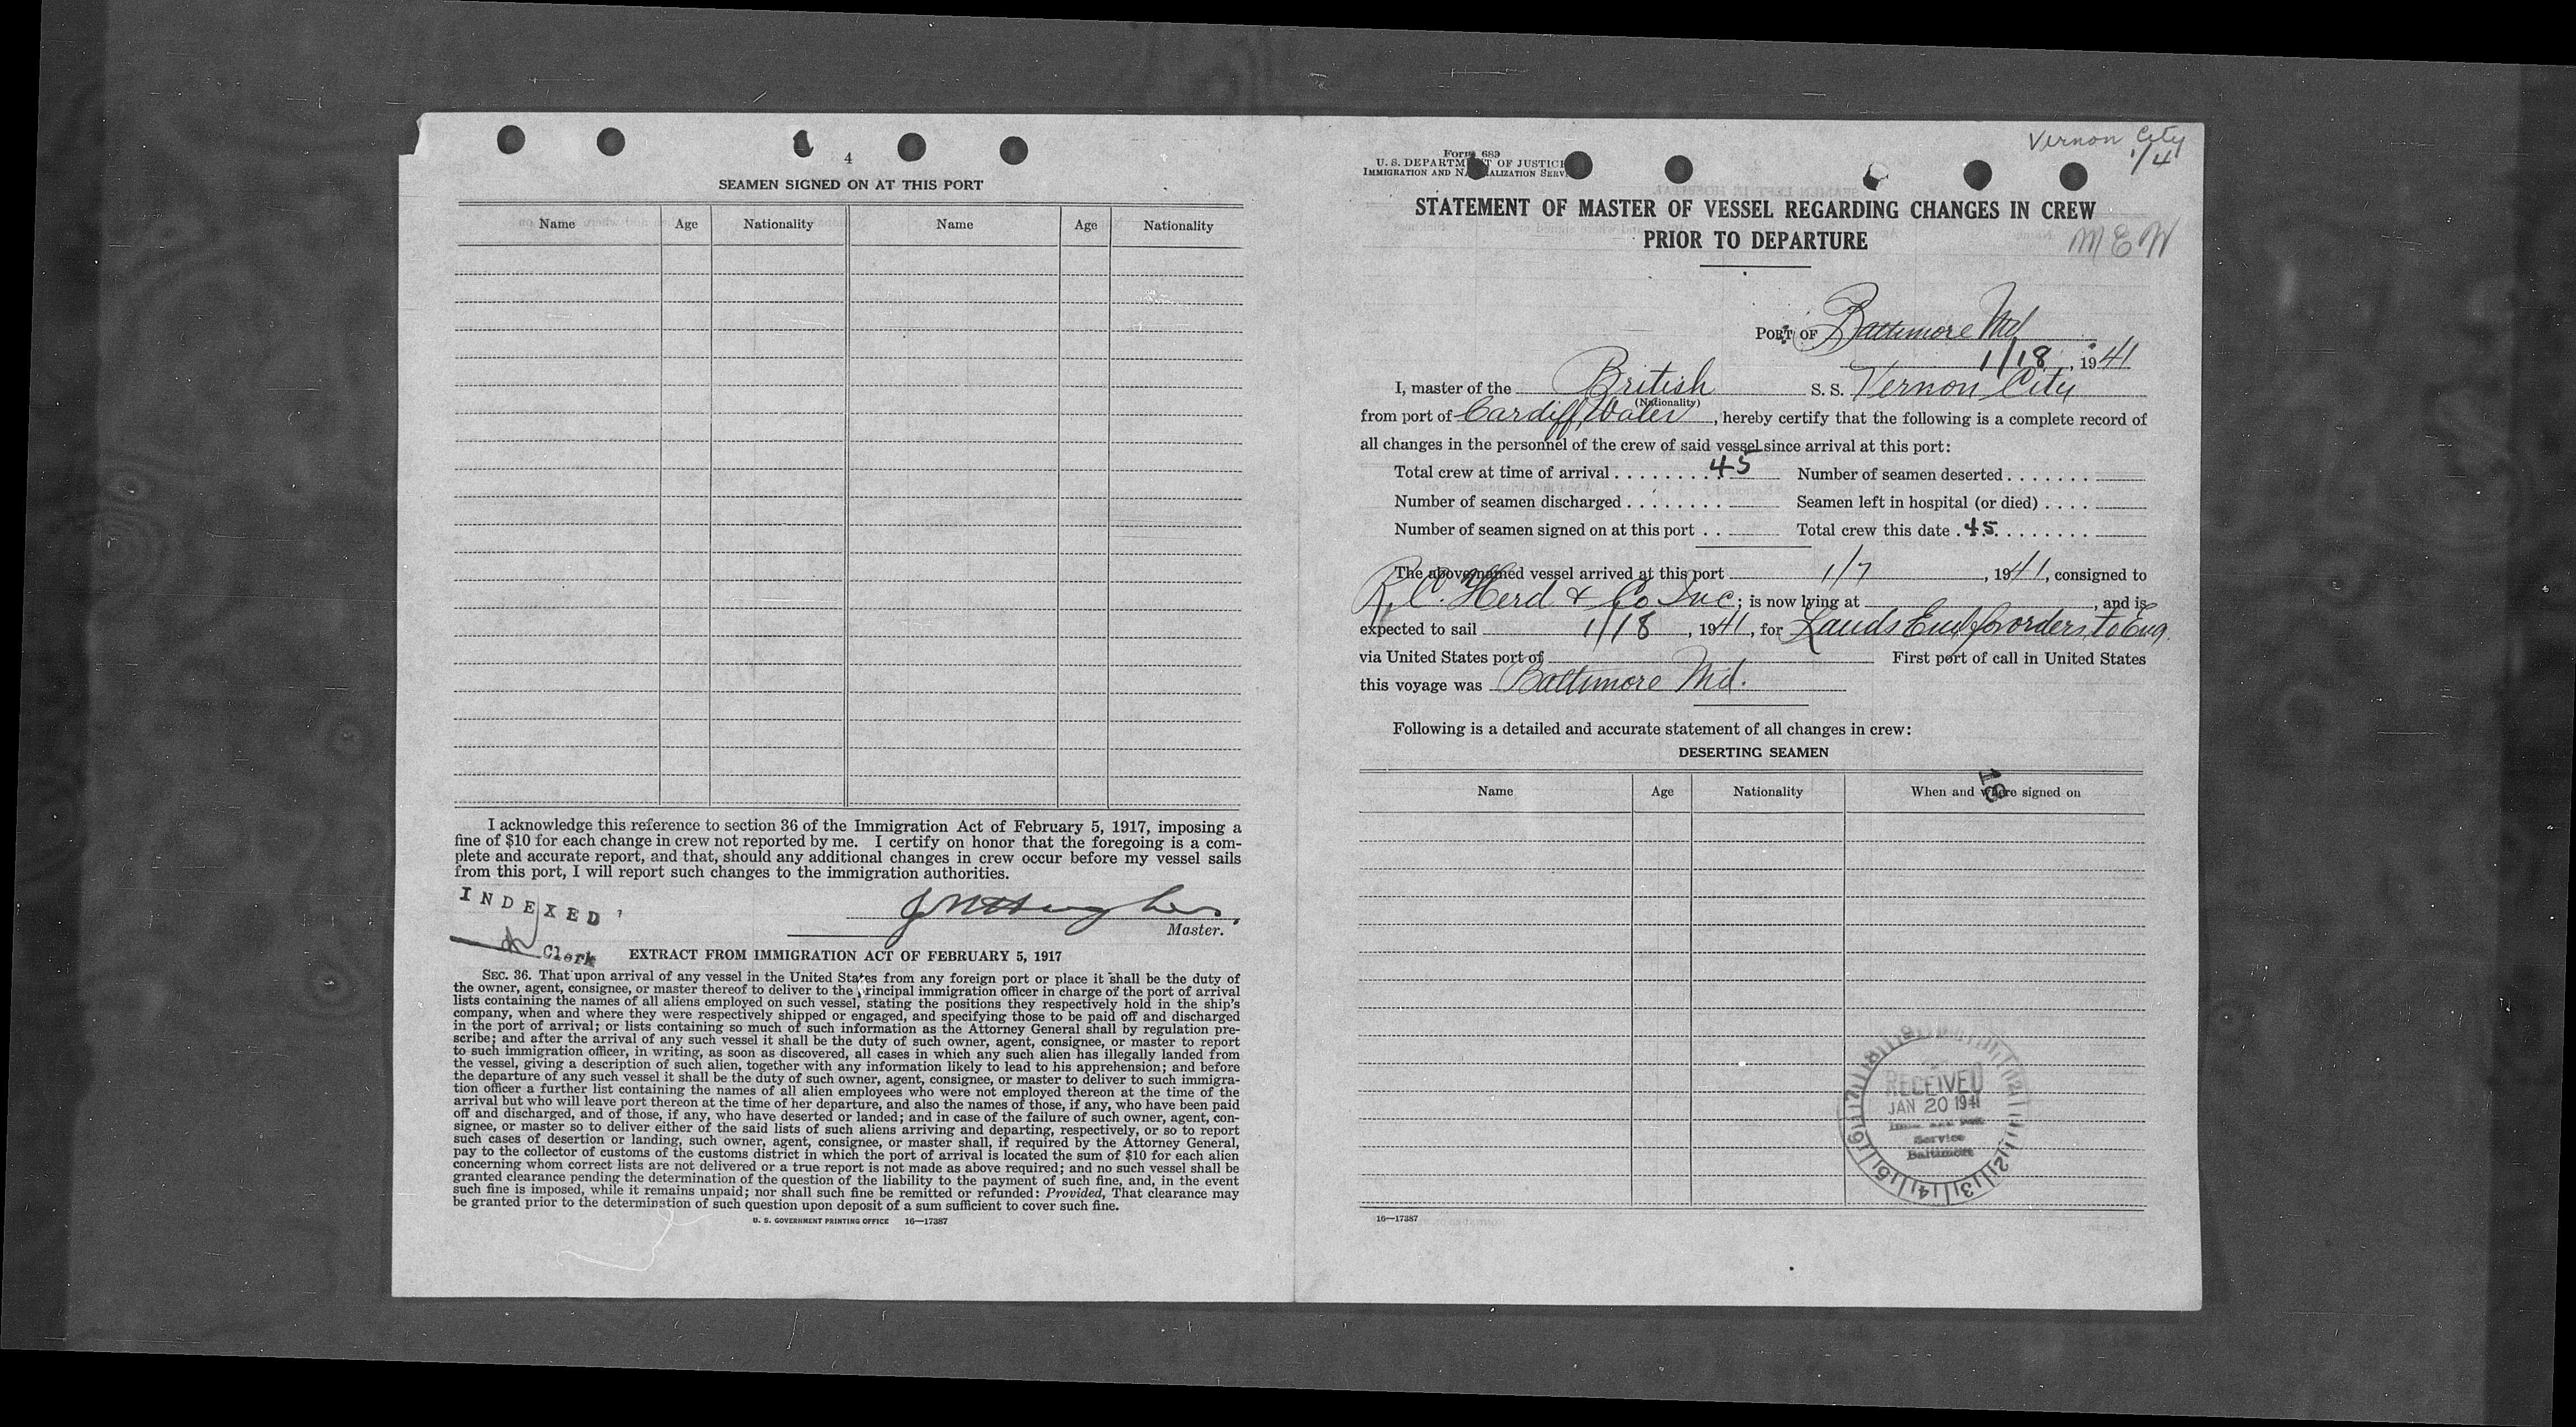 4
SEAMEN SIGNED ON AT THIS PORT
Name Age Nationality Name Age Nationality
I acknowledge this reference to section 36 of the Immigration Act of February 5, 1917, imposing a
fine of $10 for each change in crew not reported by me. I certify on honor that the foregoing is a com-
plete and accurate report, and that, should any additional changes in crew occur before my vessel sails
from this port, I will report such changes to the immigration authorities.
INDEXED
Clerk
Master.
EXTRACT FROM IMMIGRATION ACT OF FEBRUARY 5, 1917
SEC. 36. That upon arrival of any vessel in the United States from any foreign port or place it shall be the duty of
the owner, agent, consignee, or master thereof to deliver to the principal immigration officer in charge of the port of arrival
lists containing the names of all aliens employed on such vessel, stating the positions they respectively hold in the ship's
company, when and where they were respectively shipped or engaged, and specifying those to be paid off and discharged
in the port of arrival; or lists containing so much of such information as the Attorney General shall by regulation pre-
scribe; and after the arrival of any such vessel it shall be the duty of such owner, agent, consignee, or master to report
to such immigration officer, in writing, as soon as discovered, all cases in which any such alien has illegally landed from
the vessel, giving a description of such alien, together with any information likely to lead to his apprehension; and before
the departure of any such vessel it shall be the duty of such owner, agent, consignee, or master to deliver to such immigra-
tion officer a further list containing the names of all alien employees who were not employed thereon at the time of the
arrival but who will leave port thereon at the time of her departure, and also the names of those, if any, who have been paid
off and discharged, and of those, if any, who have deserted or landed; and in case of the failure of such owner, agent, con-
signee, or master so to deliver either of the said lists of such aliens arriving and departing, respectively, or so to report
such cases of desertion or landing, such owner, agent, consignee, or master shall, if required by the Attorney General,
pay to the collector of customs of the customs district in which the port of arrival is located the sum of $10 for each alien
concerning whom correct lists are not delivered or a true report is not made as above required; and no such vessel shall be
granted clearance pending the determination of the question of the liability to the payment of such fine, and, in the event
such fine is imposed, while it remains unpaid; nor shall such fine be remitted or refunded: Provided, That clearance may
be granted prior to the determination of such question upon deposit of a sum sufficient to cover such fine.
U. S. GOVERNMENT PRINTING OFFICE 16—17387
Vernon City
1/4
Form 689
U. S. DEPARTMENT OF JUSTICE
IMMIGRATION AND NATURALIZATION SERV.
STATEMENT OF MASTER OF VESSEL REGARDING CHANGES IN CREW
PRIOR TO DEPARTURE
MEW
PORT OF Baltimore Md
1/18, 1941
I, master of the British S. S. Vernon City
(Nationality)
from port of Cardiff, Wales, hereby certify that the following is a complete record of
all changes in the personnel of the crew of said vessel since arrival at this port:
Total crew at time of arrival . . . . . . . . . 45 Number of seamen deserted . . . . . . .
Number of seamen discharged . . . . . . . . Seamen left in hospital (or died) . . . .
Number of seamen signed on at this port . . Total crew this date . 45 . . . . . . . .
The above-named vessel arrived at this port 1/7, 1941, consigned to
R. C. Herd & Co Inc; is now lying at , and is
expected to sail 1/18, 1941, for Lands End for orders to Eng.
via United States port of First port of call in United States
this voyage was Baltimore Md.
Following is a detailed and accurate statement of all changes in crew:
DESERTING SEAMEN
Name Age Nationality When and where signed on
13
RECEIVED
JAN 20 1941
Service
Baltimore
16—17387